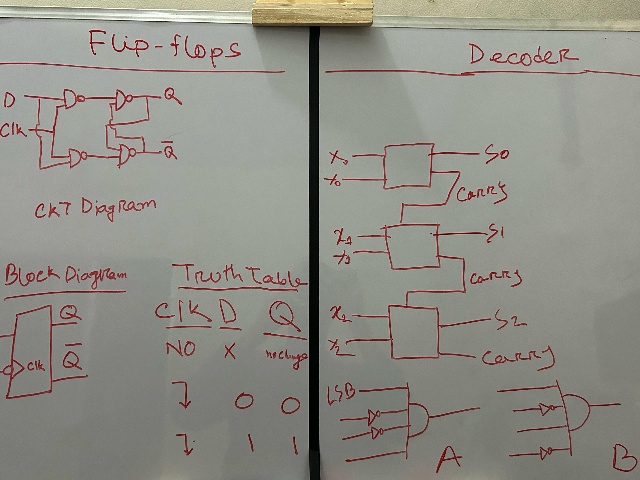 Flip-flops
D
Q
Clk
Q
CKT Diagram
Block Diagram
Q
Clk
Q
Truth Table
Clk D Q
NO X no change
0 0
1 1
Decoder
X0
S0
Y0
Carry
X1
S1
Carry
X2
S2
Carry
LSB
A
B